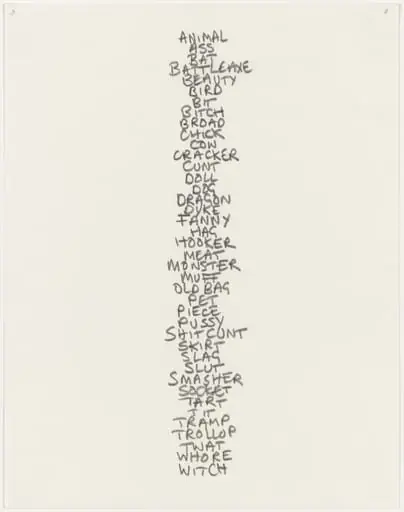 ANIMAL
ASS
BAT
BATTLEAXE
BEAUTY
BIRD
BIT
BITCH
BROAD
CHICK
COW
CRACKER
CUNT
DOLL
DOG
DRAGON
DYKE
FANNY
HAG
HOOKER
MEAT
MONSTER
MUFF
OLD BAG
PET
PIECE
PUSSY
SHITCUNT
SKIRT
SLAG
SLUT
SMASHER
SOCKET
TART
TIT
TRAMP
TROLLOP
TWAT
WHORE
WITCH